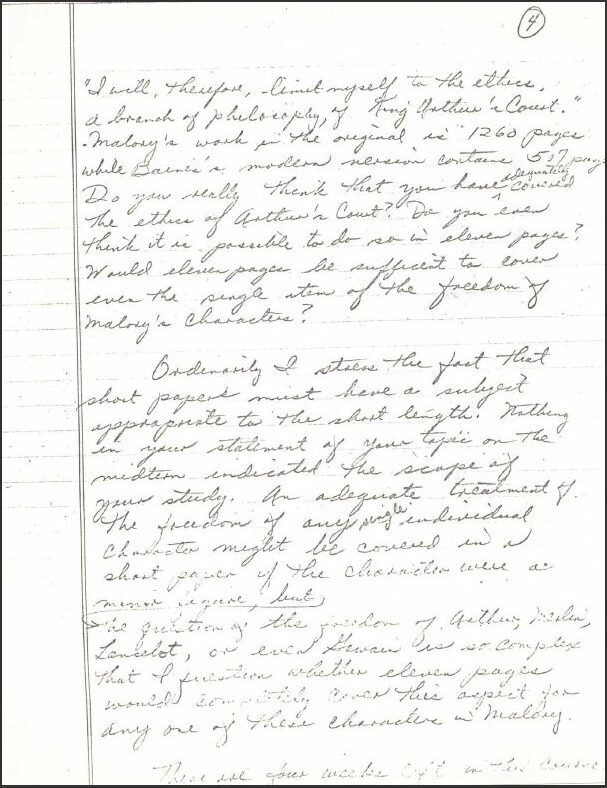 4
"I will, therefore, limit myself to the ethics,
a branch of philosophy, of King Arthur's Court."
Malory's work in the original is 1260 pages
while Baines's, modern version contains 507 pages
Do you really think that you have adequately covered
the ethics of Arthur's Court? Do you even
think it is possible to do so in eleven pages?
Would eleven pages be sufficient to cover
even the single item of the freedom of
Malory's characters?
Ordinarily I stress the fact that
short papers must have a subject
appropriate to the short length. Nothing
in your statement of your topic on the
midterm indicated the scope of
your study. An adequate treatment of
the freedom of any single individual
character might be covered in a
short paper if the character were a
minor figure, but,
the question of the freedom of Arthur, Merlin,
Lancelot, or even Gewain is so complex
that I question whether eleven pages
would completely cover this aspect for
any one of these characters in Malory.
There are four weeks left in this course